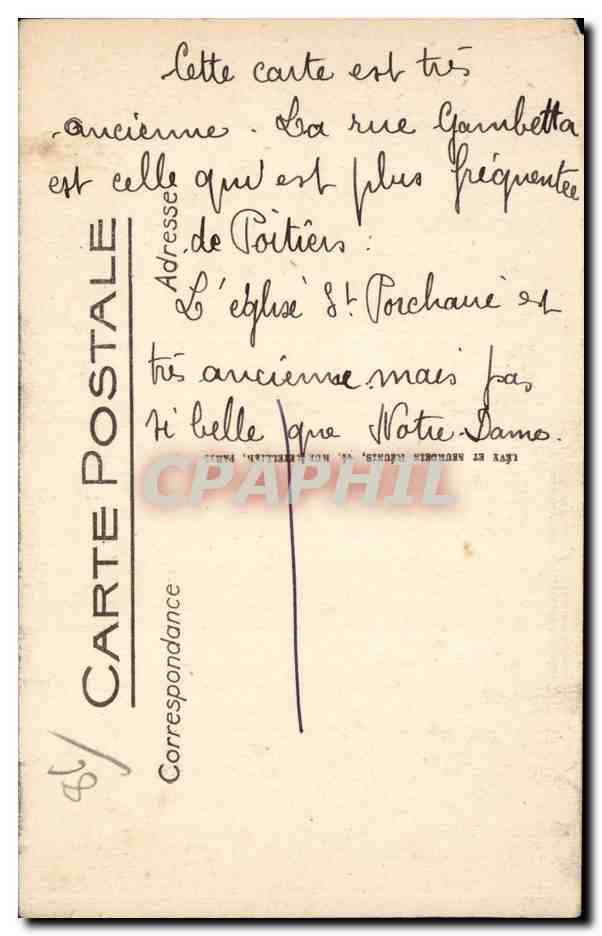 Cette carte est très
ancienne. La rue Gambetta
est celle qui est plus fréquentée
de Poitiers :
L'église St Porchaire est
très ancienne mais pas
si belle que Notre-Dame.
CARTE POSTALE
Adresse
Correspondance
LÉVY ET NEURDEIN RÉUNIS, 44, RUE LETELLIER, PARIS
CPAPHIL
86